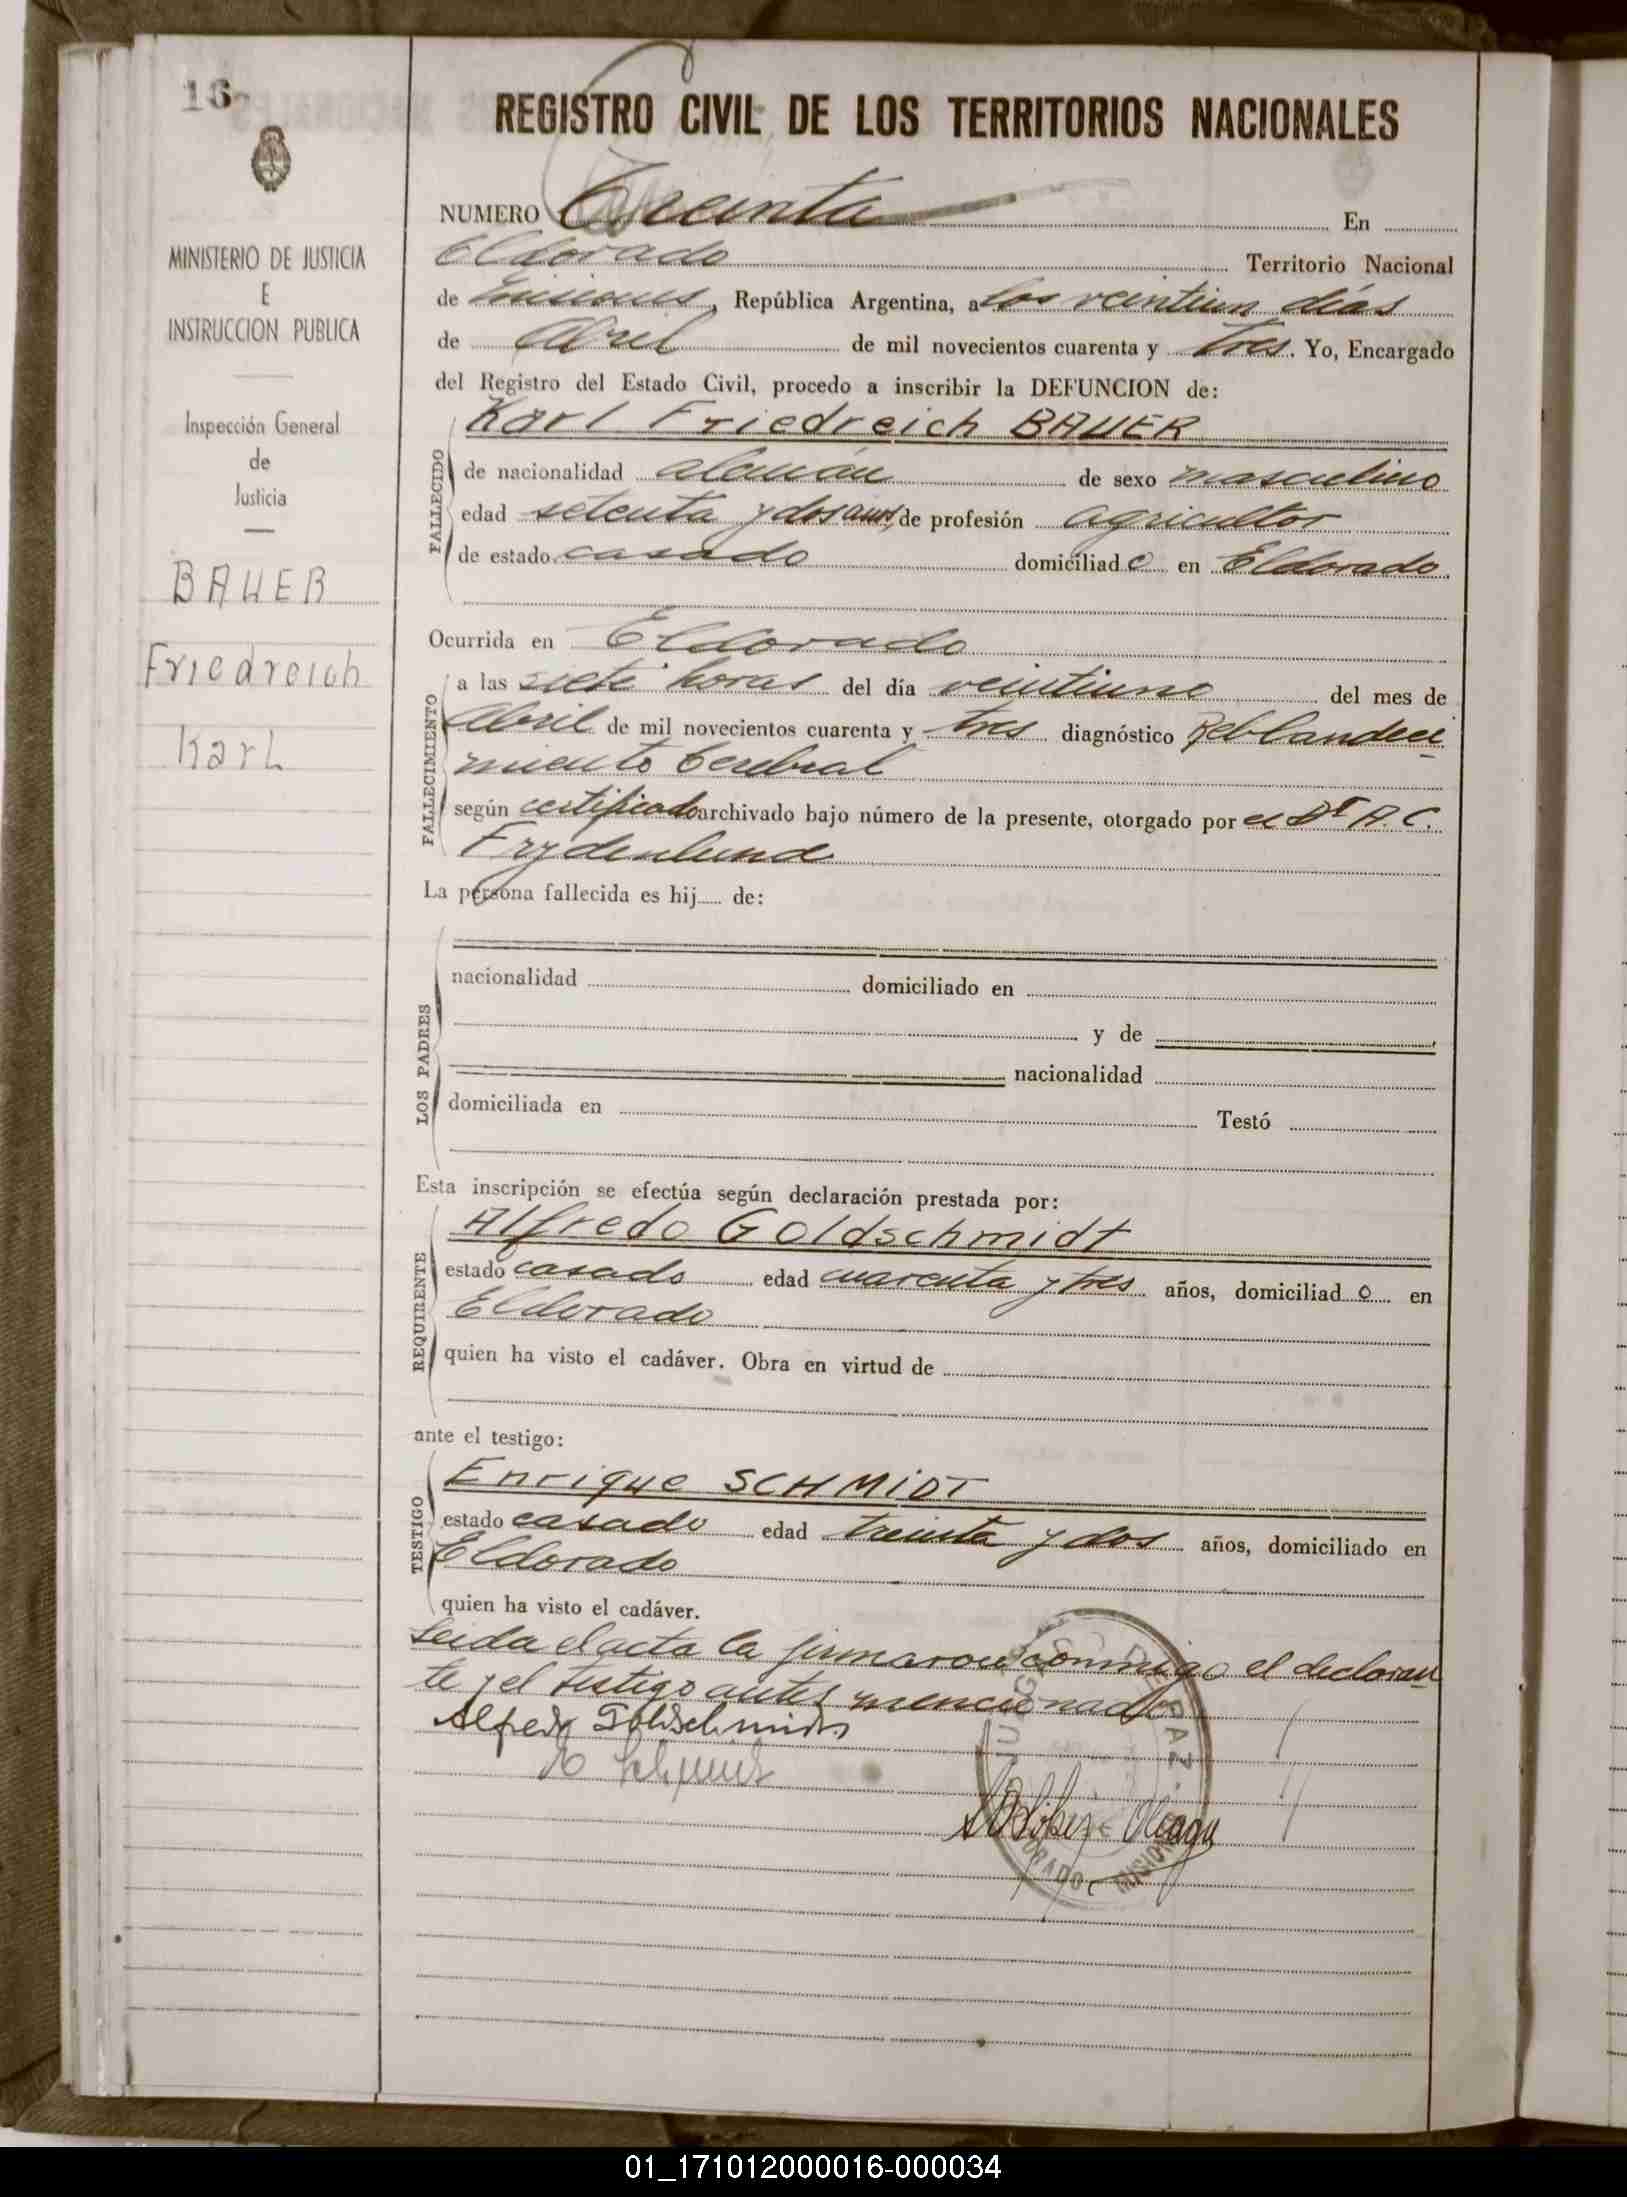 16
REGISTRO CIVIL DE LOS TERRITORIOS NACIONALES
MINISTERIO DE JUSTICIA
E
INSTRUCCION PUBLICA
Inspección General
de
Justicia
BAUER
Friedreich
Karl
NUMERO Treinta En
Eldorado Territorio Nacional
de Misiones, República Argentina, a los veintiun días
de Abril de mil novecientos cuarenta y tres. Yo, Encargado
del Registro del Estado Civil, procedo a inscribir la DEFUNCION de:
Karl Friedreich BAUER
FALLECIDO
de nacionalidad alemán de sexo masculino
edad setenta y dos años, de profesión agricultor
de estado casado domiciliado en Eldorado
Ocurrida en Eldorado
FALLECIMIENTO
a las siete horas del día veintiuno del mes de
Abril de mil novecientos cuarenta y tres diagnóstico Reblandeci
miento Cerebral
según certificado archivado bajo número de la presente, otorgado por el Dr A.C.
Frydenlund
La persona fallecida es hij de:
LOS PADRES
nacionalidad domiciliado en
y de
nacionalidad
domiciliada en Testó
Esta inscripción se efectúa según declaración prestada por:
Alfredo Goldschmidt
REQUIRENTE
estado casado edad cuarenta y tres años, domiciliado en
Eldorado
quien ha visto el cadáver. Obra en virtud de
ante el testigo:
Enrique SCHMIDT
TESTIGO
estado casado edad treinta y dos años, domiciliado en
Eldorado
quien ha visto el cadáver.
Leida el acta la firmaron conmigo el declaran
te y el testigo antes mencionado
Alfredo Goldschmidt
E Schmidt
JUZGADO DE PAZ
ELDORADO MISIONES
01_171012000016-000034